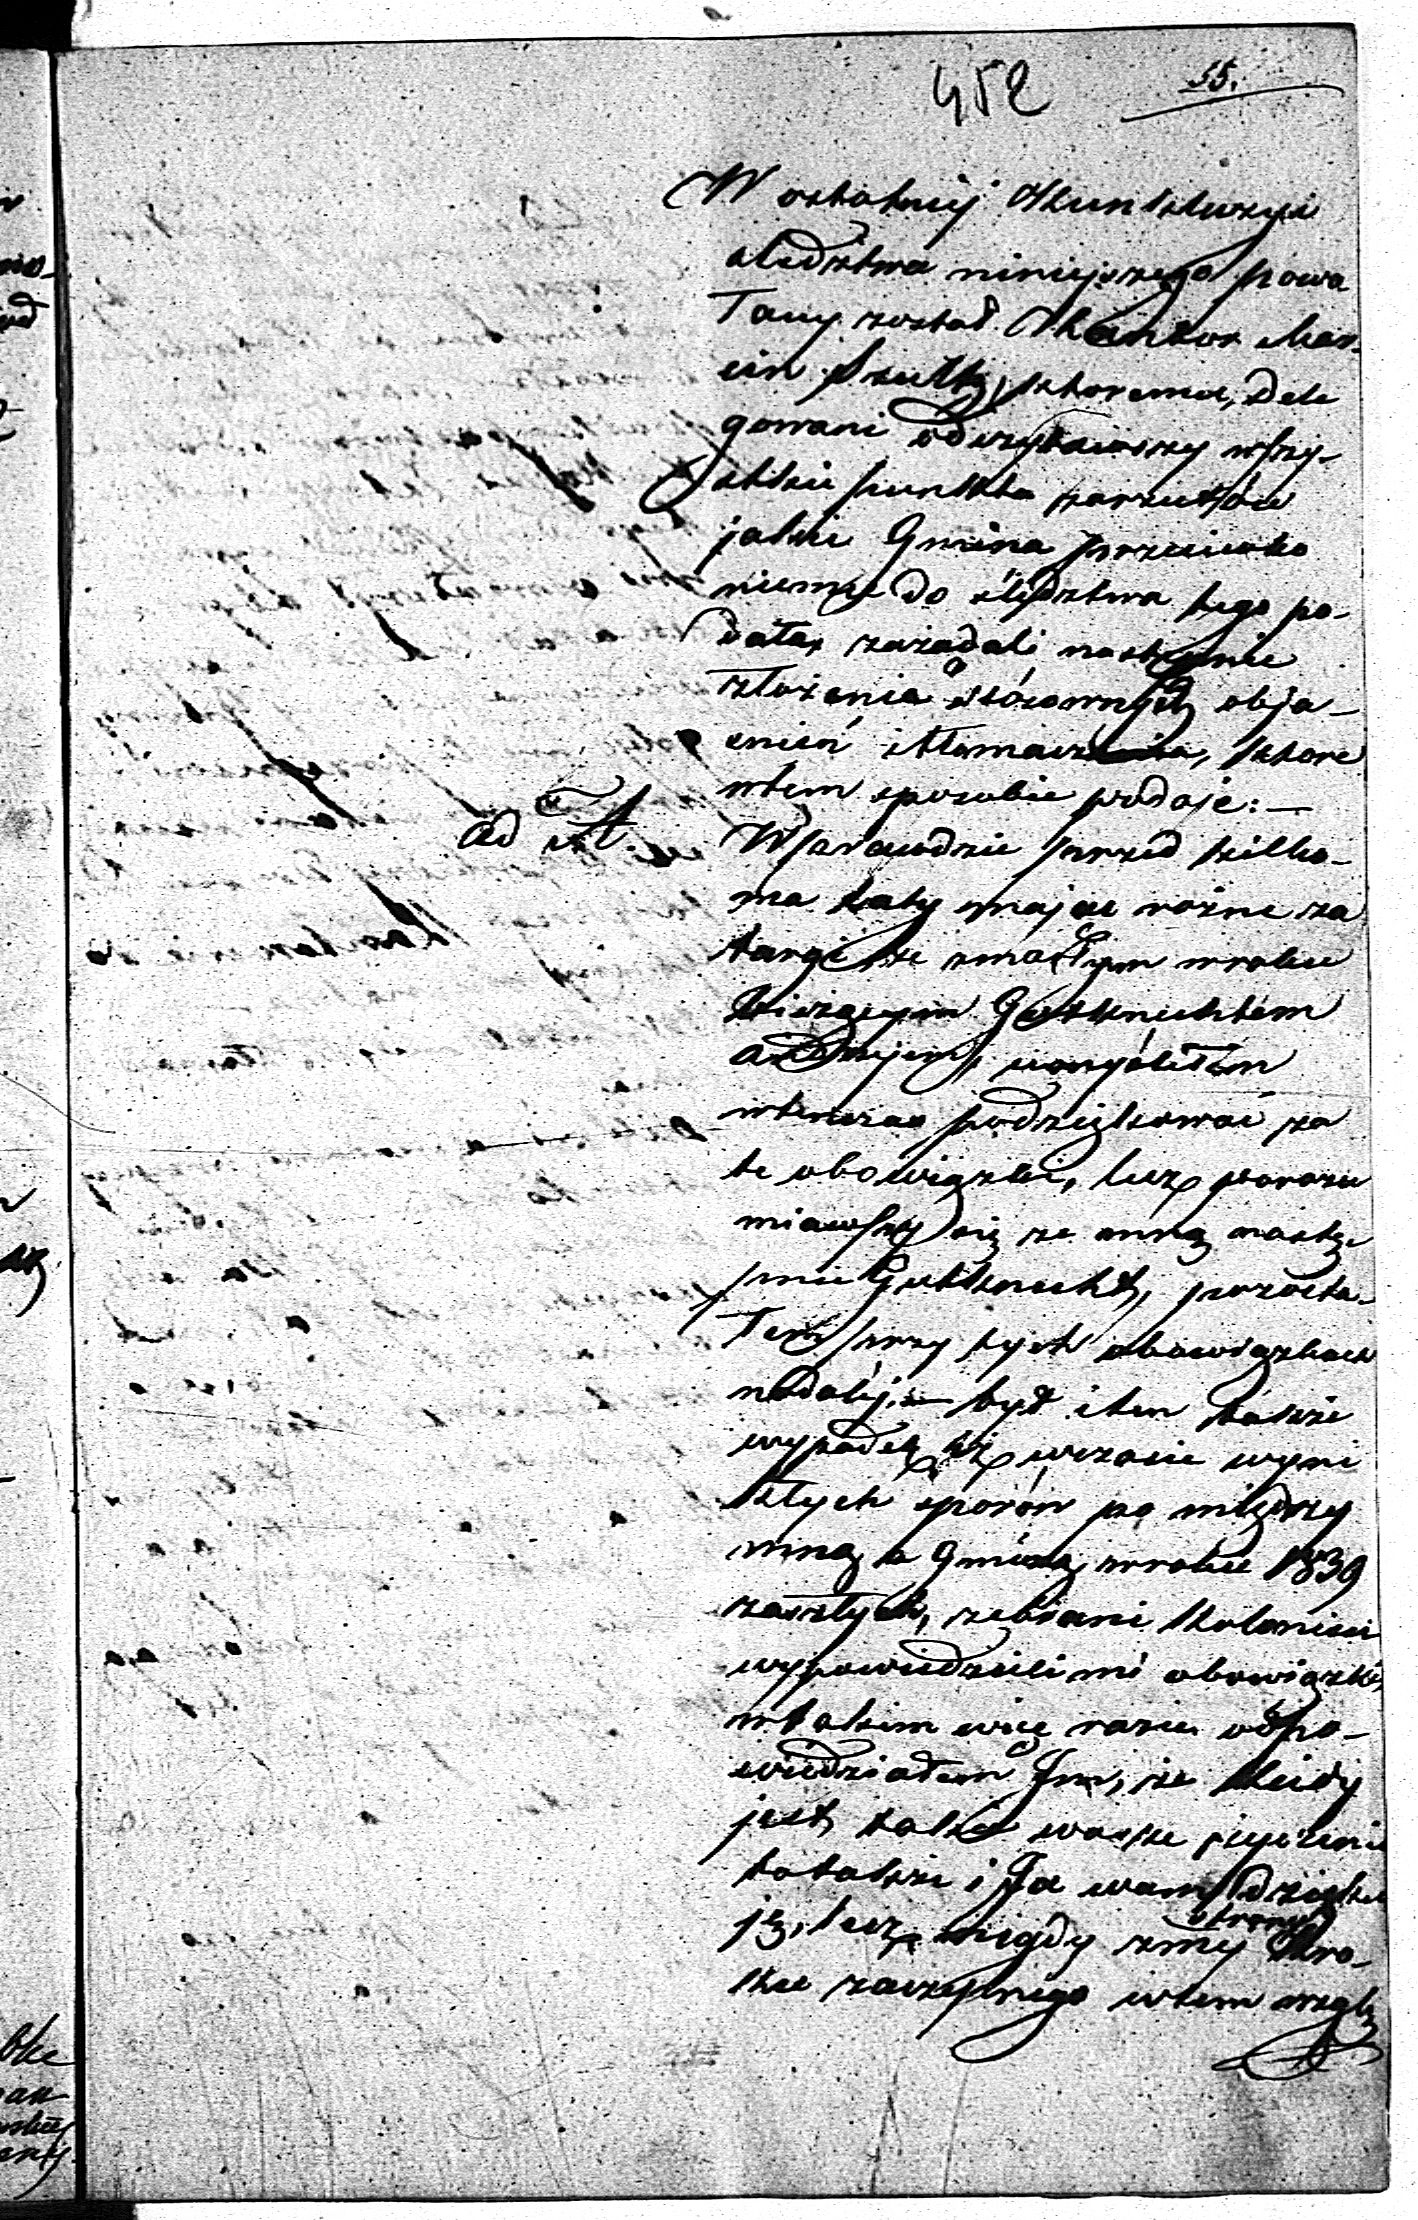 452 55.
W ostatniej Konkluzyi
śledztwa niniejszego powo
łany został Kantor Mar-
cin Szultz, któremu, Dele
gowani odczytawszy wszy-
stkie punkta zarzutów
jakie Gmina przeciwko
niemu do śledztwa tego po-
dała, zażądali następnie
złożenia stósownych obja-
śnień i tłomaczenia, które
wtem sposobie podaje: —
ad A. Wprawdzie przed kilko-
ma laty mając rożne za
targi ze zmarłym wroku
bieżącym Gutknechtem
wtenczas podziękować za
te obowiązki, lecz porozu
miawszy się ze mną nastę-
pnie Gutknecht, pozosta-
łem przy tych obowiązkach
nadal, — był i ten także
wypadek iż wczasie wyni
kłych sporów po między
mną a Gminą wroku 1839
zaszłych, zebrani Koloniści
wypowiedzieli mi obowiązki,
wtakim więc razie odpo-
wiedziałem Jm, że kiedy
jest takie wasze życzenie
to także i Ja wam dzięku
ję, lecz nigdy zmej strony kro-
ku zaczepnego wtem wzglę